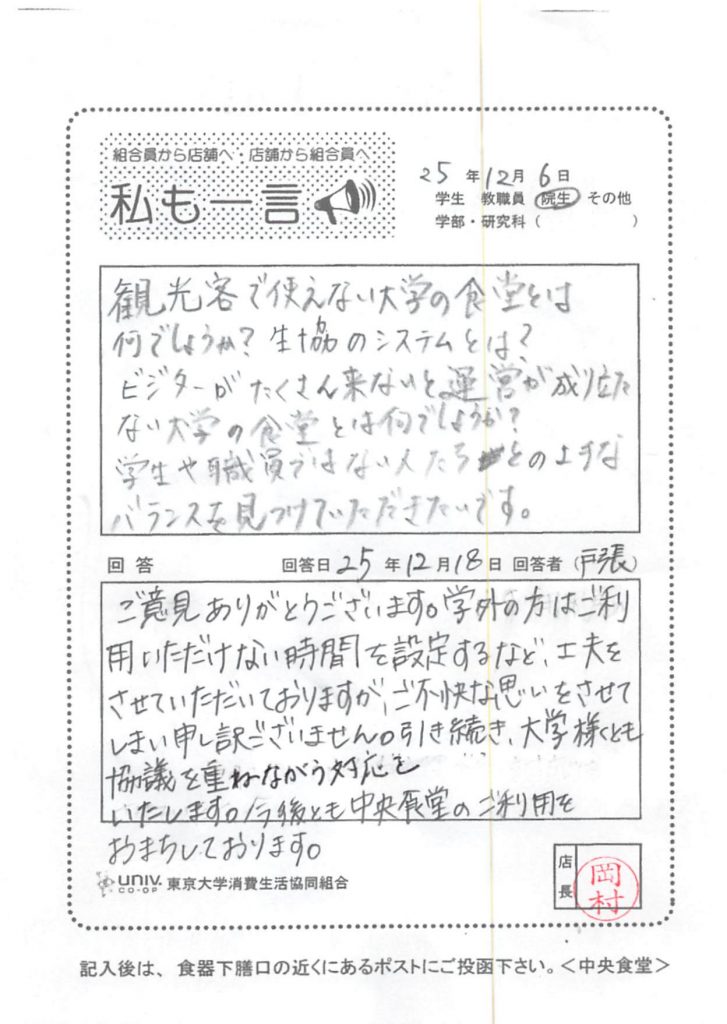 組合員から店舗へ・店舗から組合員へ
私も一言
25年12月6日
学生 教職員 院生 その他
学部・研究科( )
観光客で使えない大学の食堂とは
何でしょうか?生協のシステムとは?
ビジターがたくさん来ないと運営が成り立た
ない大学の食堂とは何でしょうか?
学生や職員ではない人たちとの上手な
バランスを見つけていただきたいです。
回答 回答日 25年12月18日 回答者(戸張)
ご意見ありがとうございます。学外の方はご利
用いただけない時間を設定するなど、工夫を
させていただいておりますが、ご不快な思いをさせて
しまい申し訳ございません。引き続き、大学様とも
協議を重ねながら対応を
いたします。今後とも中央食堂のご利用を
おまちしております。
店長 岡村
UNIV. CO-OP 東京大学消費生活協同組合
記入後は、食器下膳口の近くにあるポストにご投函下さい。<中央食堂>